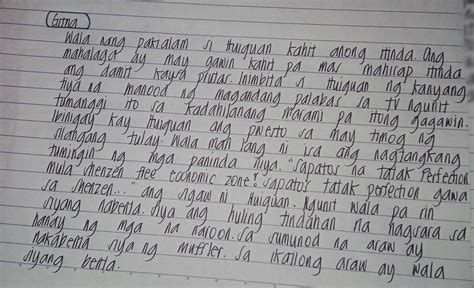 Gitna
Wala nang pakialam si Huiquan kahit anong tinda. Ang
mahalaga ay may gawin kahit pa mas mahirap itinda
ang damit kaysa prutas. Inimbita si Huiquan ng kanyang
tiya na manood ng magandang palabas sa TV ngunit
tumanggi ito sa kadahilanang marami pa itong gagawin.
Ibinigay kay Huiquan ang pwesto sa may timog ng
silangang tulay. Wala man lang ni isa ang nagtangkang
tumingin ng mga paninda niya. "Sapatos na tatak Perfection
mula Shenzen free economic zone! Sapatos tatak perfection gawa
sa Shenzen..." ang sigaw ni Huiquan. Ngunit wala pa rin
siyang nabenta. Siya ang huling tindahan na nagsara sa
hanay ng mga na naroon. Sa sumunod na araw ay
nakabenta siya ng muffler. Sa ikatlong araw ay wala
siyang benta.